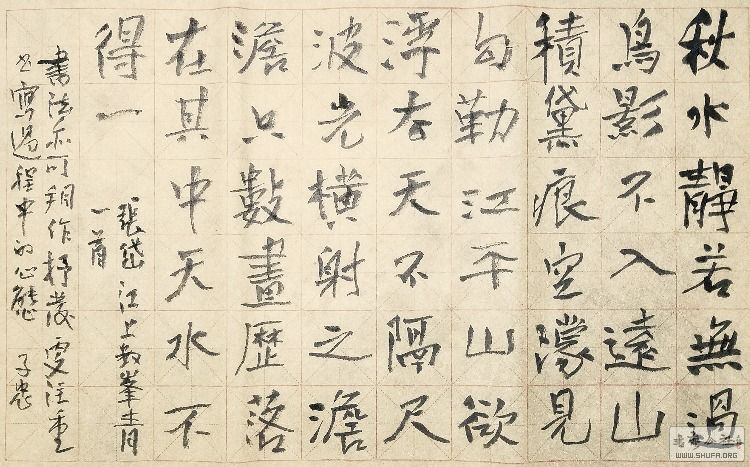 秋水靜若無過
鳥影不入遠山
積黛痕空濛見
勾勒江平山欲
浮去天不隔尺
波光橫射之澹
澹只數畫歷落
在其中天水不
得一
張岱江上數峯青
一首
書法亦可稱作抒發更注重
书寫過程中的心態
WWW.SHUFA.ORG